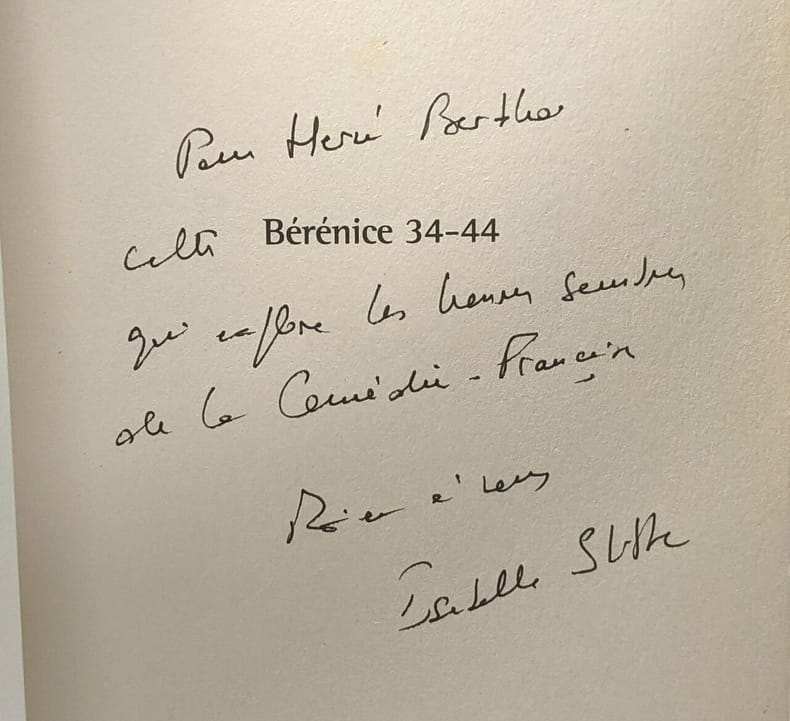 Pour Hervé Berthou
cette Bérénice 34-44
qui explore les heures sombres
de la Comédie-Française
Bien à vous
Isabelle Stibbe